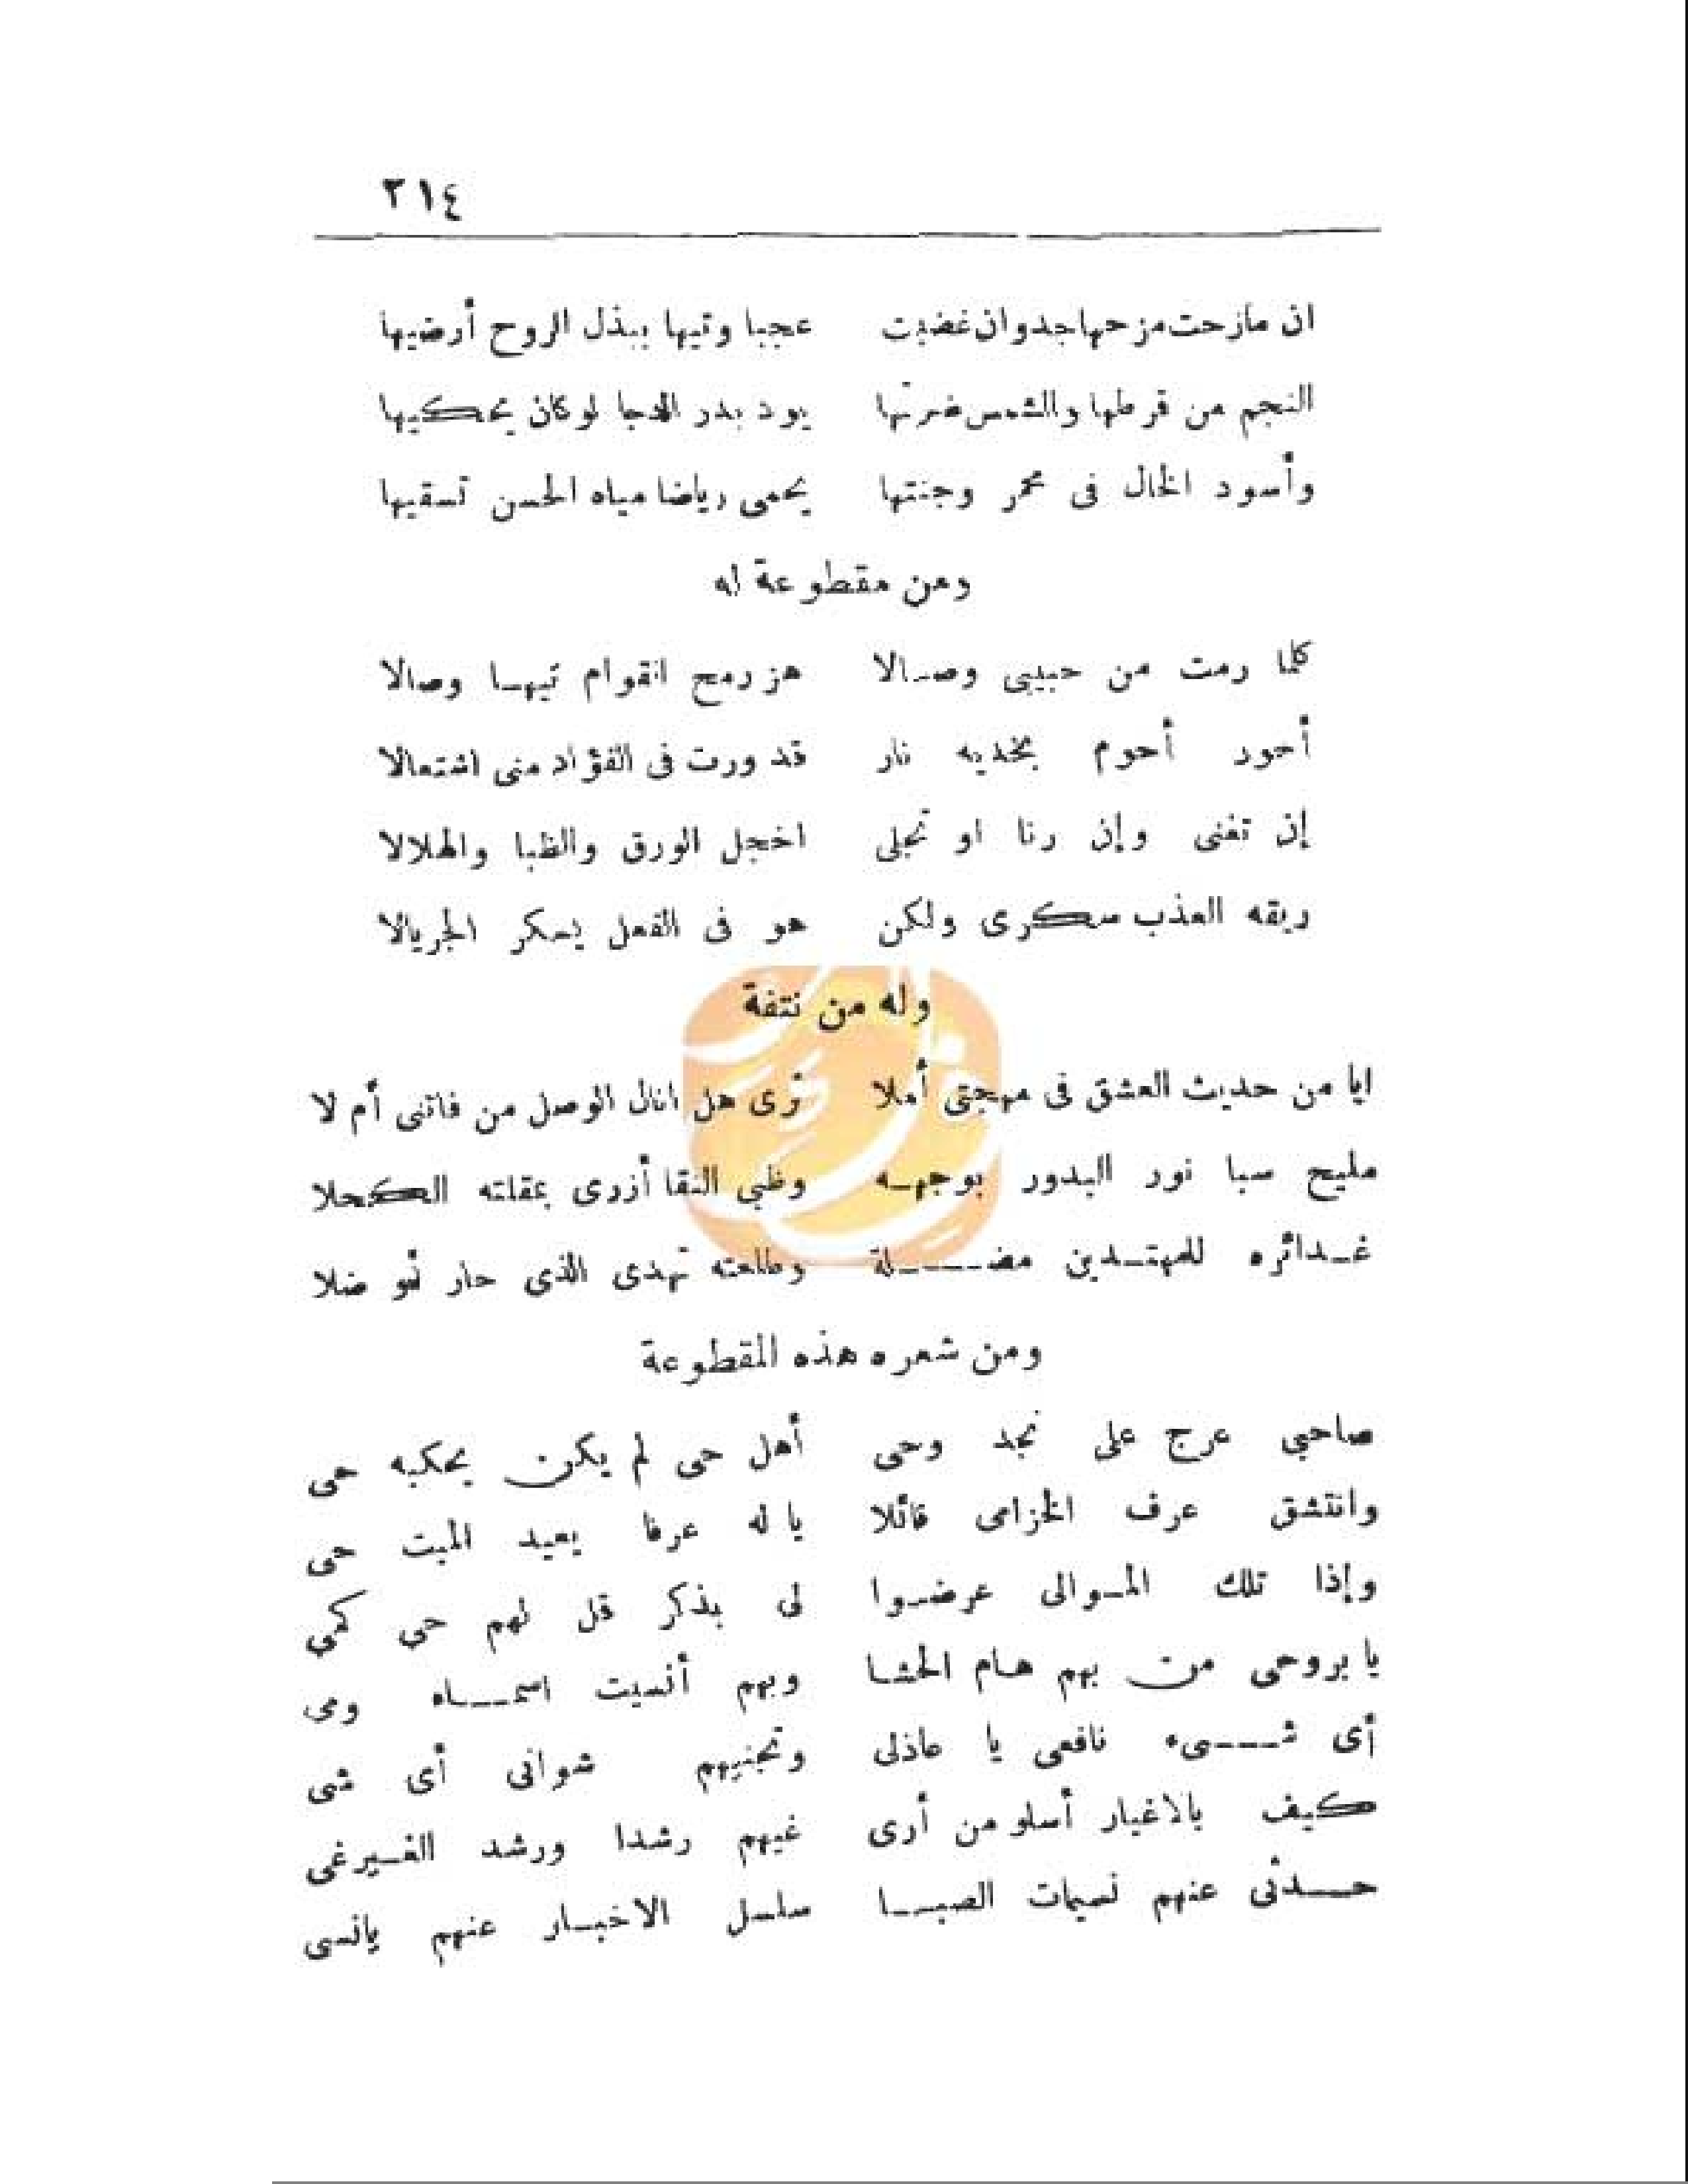 ٢١٤
ان مازحت مزحها جد وان غضبت عجبا وتيها ببذل الروح أرضيها
النجم من قرطها والشمس ضرتها يود بدر الدجا لو كان يحكيها
وأسود الخال فى محمر وجنتها يحمى رياضا مياه الحسن تسقيها
ومن مقطوعة له
كلما رمت من حبيبى وصالا هز رمح القوام تيها وصالا
أحود أحوم بخديه نار قد ورت فى الفؤاد منى اشتعالا
إن تغنى وإن رنا او تجلى اخجل الورق والظبا والهلالا
ريقه العذب سكرى ولكن هو فى الفعل يسكر الجريالا
وله من نتفة
ايا من حديث العشق فى مهجتى أملا ترى هل انال الوصل من فاتنى أم لا
مليح سبا نور البدور بوجهه وظبى النقا أزرى بمقلته الكحلا
غدائره للمهتدين مضلة وطلعته تهدى الذى حار أو ضلا
ومن شعره هذه المقطوعة
صاحبي عرج على نجد وحى أهل حى لم يكن يحكيه حى
وانتشق عرف الخزامى قائلا يا له عرفا يعيد الميت حى
وإذا تلك الموالى عرضوا لى بذكر قل لهم حى كمي
يا بروحى من بهم هام الحشا وبهم أنسيت اسماه ومى
أى شىء نافعى يا عاذلى وتجنيهم شوانى أى شى
كيف بالاغيار أسلو من أرى غيهم رشدا ورشد الغير غى
حدثى عنهم نسيمات الصبا سلسل الاخبار عنهم يانسى